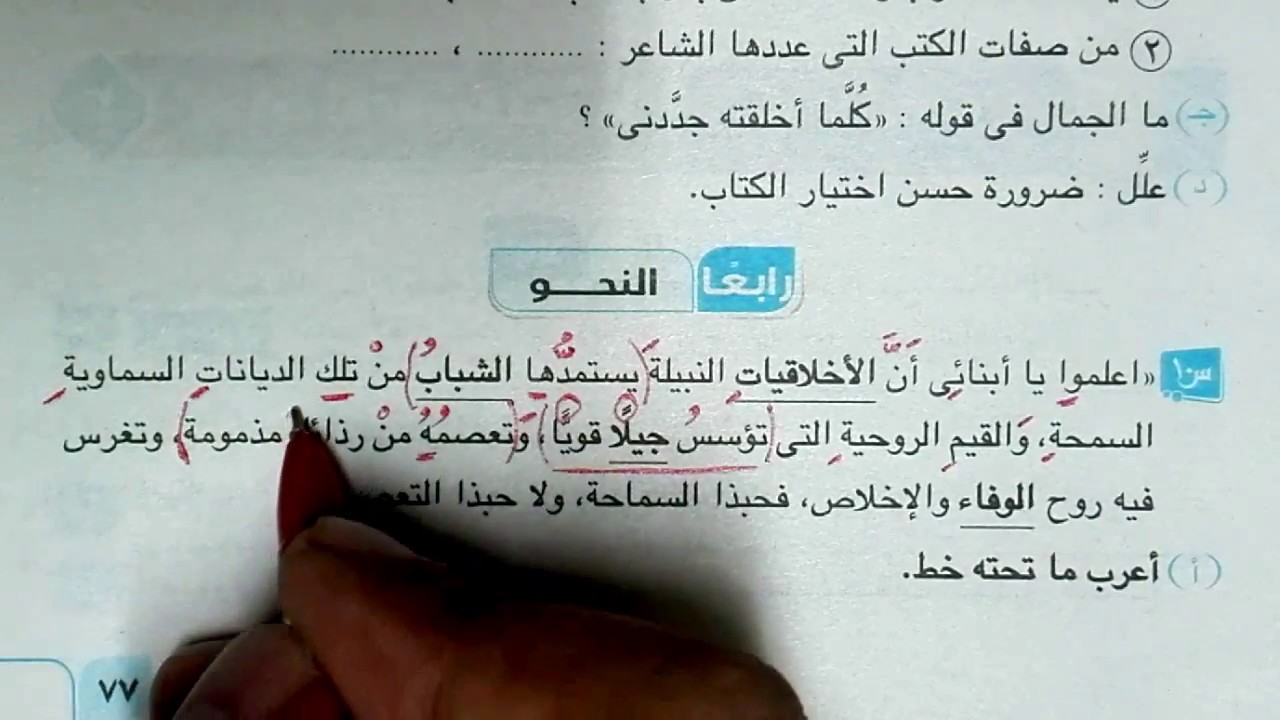 ٢ من صفات الكتب التى عددها الشاعر : ............ ، ............
(جـ) ما الجمال فى قوله : «كُلَّما أخلقته جدَّدنى» ؟
(د) علِّل : ضرورة حسن اختيار الكتاب.
رابعًا النحـــو
س١ «اعلموا يا أبنائِى أَنَّ الأخلاقياتِ النبيلةَ (يستمدُّها الشبابُ) منْ تلك الدياناتِ السماويةِ
السمحةِ، وَالقيمِ الروحيةِ التى (تؤسسُ جيلًا قويًّا)، (وَتعصمُهُ منْ مذمومة)، وتغرس
فيه روح الوفاء والإخلاص، فحبذا السماحة، ولا حبذا
(أ) أعرب ما تحته خط.
٧٧